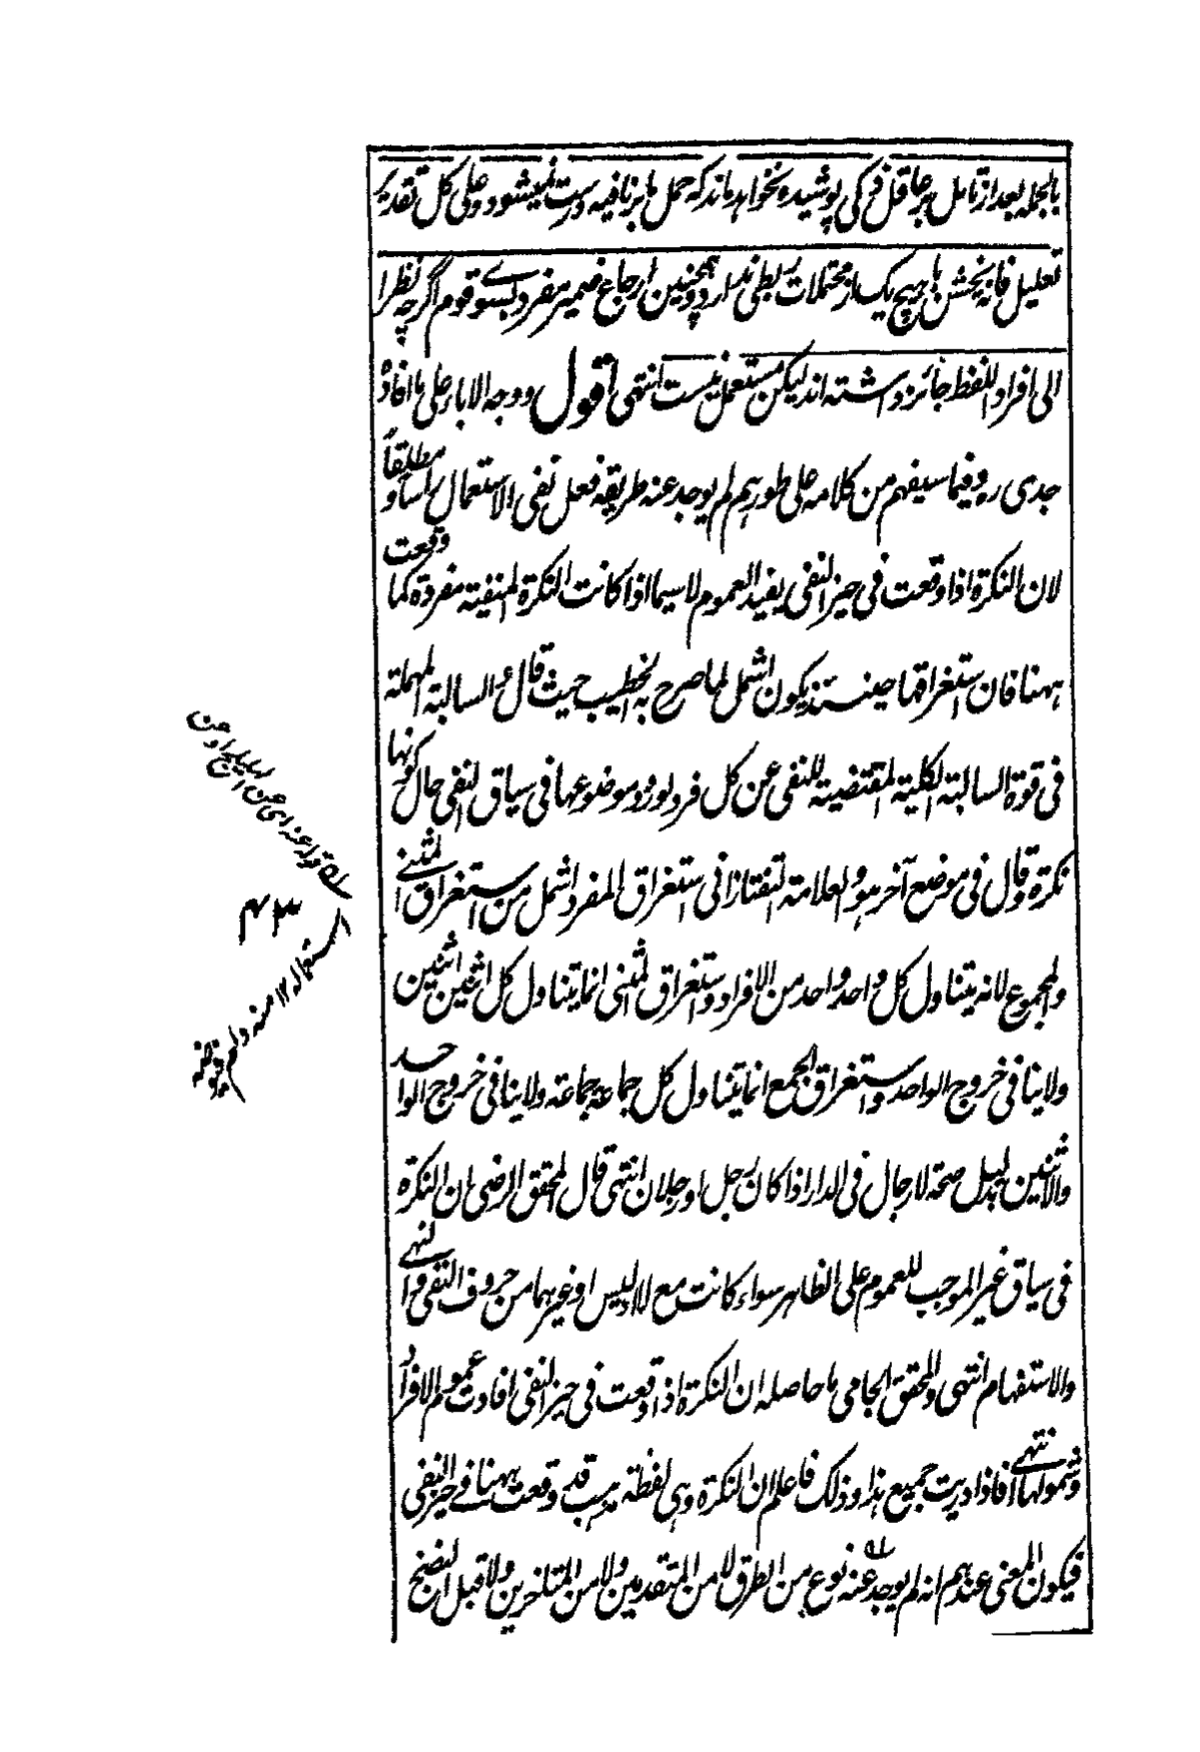 بالجمله بعد از تامل بر عاقل ذکی پوشیده نخواهد ماند که حمل ما بر نافیه درست نمیشود و علی کل تقدیر
تعلیل فانه بخشن با هیچ یک از محتملات ربطی ندارد و همچنین ارجاع ضمیر مفرد بسوے قوم اگرچه نظرا
الی افراد اللفظ جائز داشته اند لیکن مستعمل نیست انتهی اقول ووجه الاباء علی ما افاده
جدی ره فیما سیفهم من کلامه علی طورهم لم یوجد عنه طریقه فعل نفی الاستعمال راسا و مطلقاً
لان النکرة اذا وقعت فی حیز النفی یفید العموم لاسیما اذا کانت النکرة المنفیته مفردة کما وقعت
ههنا فان استغراقها حینئذ یکون اشمل لما صرح به الخطیب حیث قال والسالبة المهملة
فی قوة السالبة الکلیة المقتضیة للنفی عن کل فرد لورود موضوعها فی سیاق النفی حال کونها
نکرة وقال فی موضع آخر هو والعلامة التفتازانی استغراق المفرد اشمل من استغراق المثنے
والمجموع لانه یتناول کل واحد واحد من الافراد واستغراق المثنی انما یتناول کل اثنین اثنین
ولاینافی خروج الواحد واستغراق الجمع انما یتناول کل جماعة جماعة ولاینافی خروج الواحد
والاثنین بدلیل صحة لارجال فی الدار اذا کان رجل او رجلان انتهی قال المحقق الرضی ان النکرة
فی سیاق غیر الموجب للعموم علی الظاهر سواء کانت مع لا او لیس او غیرهما من حروف النفی والنهے
والاستفهام انتهی والمحقق الجامی ما حاصله ان النکرة اذا وقعت فی حیز النفی افادت عموم الافراد
وشمولها انتهے فاذا دریت جمیع هذا وذلک فاعلم ان النکرة وهی لفظة مذهب قد وقعت ههنا فے حیز النفی
فیکون المعنی عندهم انه لم یوجد عنه نوع من الطرق لا من المتقدمین ولا من المتاخرین ولا قبل النضج
له قوله عنه ای عن
۴۳
۱۲ منه دام فیوضه